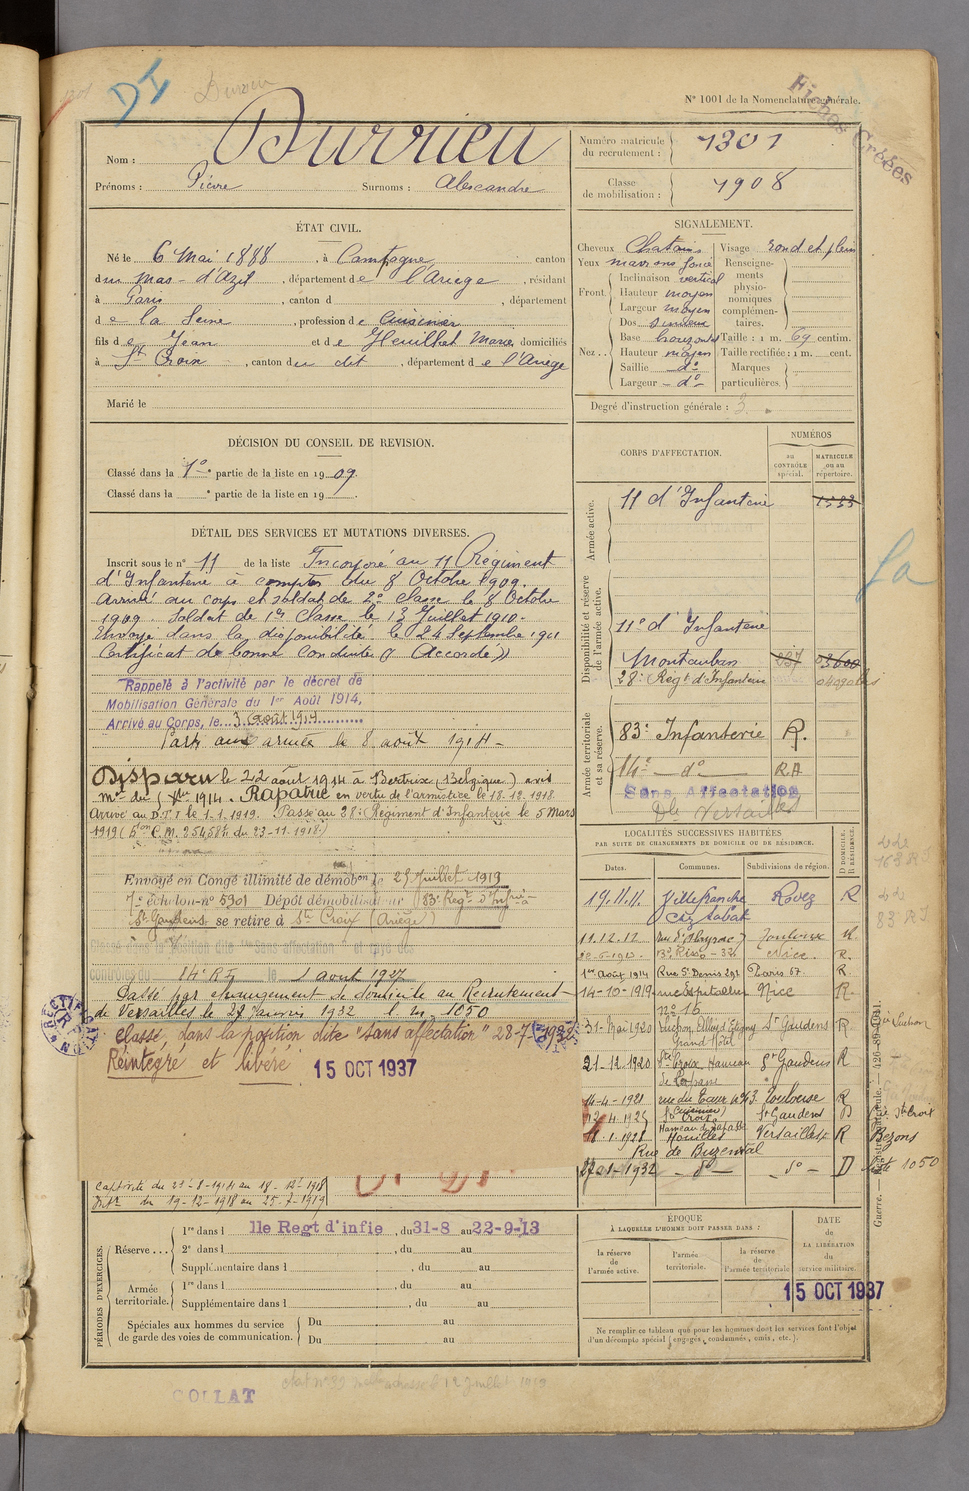 N° 1001 de la Nomenclature générale.
Fiches Créées
1301
DI
Durrieu
Nom : Durrieu
Prénoms : Pierre Surnoms : Alexandre
Numéro matricule du recrutement : 1301
Classe de mobilisation : 1908
ÉTAT CIVIL.
Né le 6 Mai 1888, à Campagne canton
du mas-d'Azil, département de l'Ariege, résidant
à Paris, canton d , département
de la Seine, profession de Cuisinier
fils de Jean et de Heuillet Marie domiciliés
à Ste Croix, canton du dit, département de l'Ariege
Marié le
SIGNALEMENT.
Cheveux Chatains
Yeux marrons foncé
Front. Inclinaison vertical
Hauteur moyen
Largeur moyen
Nez.. Dos sinueux
Base horizontal
Hauteur moyen
Saillie do
Largeur do
Visage rond et plein
Renseignements physionomiques complémentaires.
Taille : 1 m. 69 centim.
Taille rectifiée : 1 m. cent.
Marques particulières.
Degré d'instruction générale : 3
DÉCISION DU CONSEIL DE REVISION.
Classé dans la 1e partie de la liste en 1909.
Classé dans la e partie de la liste en 19 .
DÉTAIL DES SERVICES ET MUTATIONS DIVERSES.
Inscrit sous le n° 11 de la liste Incorporé au 11 Régiment
d'Infanterie à compter du 8 Octobre 1909.
Arrivé au corps et soldat de 2e classe le 8 Octobre
1909. Soldat de 1re Classe le 13 Juillet 1910.
Envoyé dans la disponibilité le 24 Septembre 1911
Certificat de bonne conduite « Accordé »
Rappelé à l'activité par le décret de
Mobilisation Générale du 1er Août 1914,
Arrivé au Corps, le 3 août 1914
Parti aux armées le 8 août 1914 -
Disparu le 22 août 1914 à Bertrix (Belgique) avis
mel du 5 Xbre 1914. Rapatrié en vertu de l'armistice le 18.12.1918.
Arrivé au D.T.I le 1.1.1919. Passé au 28e Régiment d'Infanterie le 5 Mars
1919 (Don C.M. 25458h du 23-11-1918)
Envoyé en Congé illimité de démobon le 25 Juillet 1919
7e échelon n° 5301 Dépôt démobilisateur 83e Regt d'Infrie à
St Gaudens se retire à Ste Croix (Ariège)
Classé dans la position dite "Sans affectation" et rayé des
contrôles du 14e RI le 1 août 1927
Passé par changement de domicile au Recrutement
de Versailles le 27 Janvier 1932 l m 1050
RECTIFICATION
classé dans la position dite "sans affectation" 28-7-1932
Réintégré et libéré 15 OCT 1937
Captivité du 22-8-1914 au 18-12-1918
Intr du 19-12-1918 au 25-7-1919
CORPS D'AFFECTATION.
NUMÉROS
au CONTRÔLE spécial.
MATRICULE ou au répertoire.
Armée active.
11 d'Infanterie 1533
Disponibilité et réserve de l'armée active.
11e d'Infanterie
Montauban 237 03600
28e Regt d'Infanterie
Armée territoriale et sa réserve.
83e Infanterie R.
14e do RA
Sans Affectation
Dle Versailles
LOCALITÉS SUCCESSIVES HABITÉES
PAR SUITE DE CHANGEMENTS DE DOMICILE OU DE RÉSIDENCE.
Dates. Communes. Subdivisions de région. D DOMICILE. R RÉSIDENCE.
19.11.11. Villefranche chez Sabat Rodez R
11.12.11 Toulouse R.
Nice R.
1er Août 1914 Rue St Denis 291 Paris 67. R.
14-10-1919 Nice R.
n° 16
31-Mai 1920 Luchon St Gaudens R
Grand Hôtel
21-12-1920 Ste Croix Hameau St Gaudens R
14-4-1921 rue du Taur n° 43 Toulouse R
(Cuisinier)
12.4.1925 Ste Croix St Gaudens D
11.1.1928 Houilles Versailles R Bezons
Rue de Buzenval
27.01-1932 do do D liste 1050
PÉRIODES D'EXERCICES.
Réserve...
1re dans l 11e Regt d'infie, du 31-8 au 22-9-13
2e dans l , du au
Supplémentaire dans l , du au
Armée territoriale.
1re dans l , du au
Supplémentaire dans l , du au
Spéciales aux hommes du service de garde des voies de communication.
Du au
Du au
ÉPOQUE
À LAQUELLE L'HOMME DOIT PASSER DANS :
la réserve de l'armée active.
l'armée territoriale.
la réserve de l'armée territoriale
DATE de LA LIBÉRATION du service militaire.
15 OCT 1937
Ne remplir ce tableau que pour les hommes dont les services font l'objet
d'un décompte spécial (engagés, condamnés, omis, etc.).
COLLAT